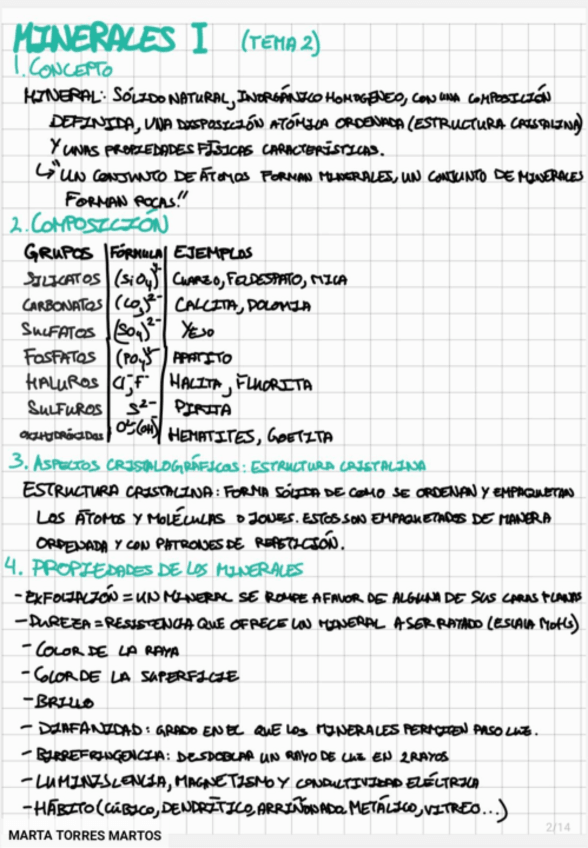 MINERALES I (TEMA 2)
1. CONCEPTO
MINERAL: SÓLIDO NATURAL, INORGÁNICO HOMOGÉNEO, CON UNA COMPOSICIÓN
DEFINIDA, UNA DISPOSICIÓN ATÓMICA ORDENADA (ESTRUCTURA CRISTALINA)
Y UNAS PROPIEDADES FÍSICAS CARACTERÍSTICAS.
↳ "UN CONJUNTO DE ÁTOMOS FORMAN MINERALES, UN CONJUNTO DE MINERALES
FORMAN ROCAS."
2. COMPOSICIÓN
GRUPOS | FÓRMULA | EJEMPLOS
SILICATOS | (SiO₄)⁴⁻ | CUARZO, FELDESPATO, MICA
CARBONATOS | (CO₃)²⁻ | CALCITA, DOLOMIA
SULFATOS | (SO₄)²⁻ | YESO
FOSFATOS | (PO₄) | APATITO
HALUROS | Cl⁻, F⁻ | HALITA, FLUORITA
SULFUROS | S²⁻ | PIRITA
OXIHIDRÓXIDOS | O²⁻, (OH)⁻ | HEMATITES, GOETITA
3. ASPECTOS CRISTALOGRÁFICOS: ESTRUCTURA CRISTALINA
ESTRUCTURA CRISTALINA: FORMA SÓLIDA DE COMO SE ORDENAN Y EMPAQUETAN
LOS ÁTOMOS Y MOLÉCULAS O IONES. ESTOS SON EMPAQUETADOS DE MANERA
ORDENADA Y CON PATRONES DE REPETICIÓN.
4. PROPIEDADES DE LOS MINERALES
- EXFOLIACIÓN = UN MINERAL SE ROMPE A FAVOR DE ALGUNA DE SUS CARAS PLANAS
- DUREZA = RESISTENCIA QUE OFRECE UN MINERAL A SER RAYADO (ESCALA MOHS)
- COLOR DE LA RAYA
- COLOR DE LA SUPERFICIE
- BRILLO
- DIAFANIDAD: GRADO EN EL QUE LOS MINERALES PERMITEN PASO LUZ.
- BIRREFRINGENCIA: DESDOBLAR UN RAYO DE LUZ EN 2 RAYOS
- LUMINISCENCIA, MAGNETISMO Y CONDUCTIVIDAD ELÉCTRICA
- HÁBITO (CÚBICO, DENDRÍTICO, ARRIÑONADO, METÁLICO, VITREO...)
MARTA TORRES MARTOS
2/14